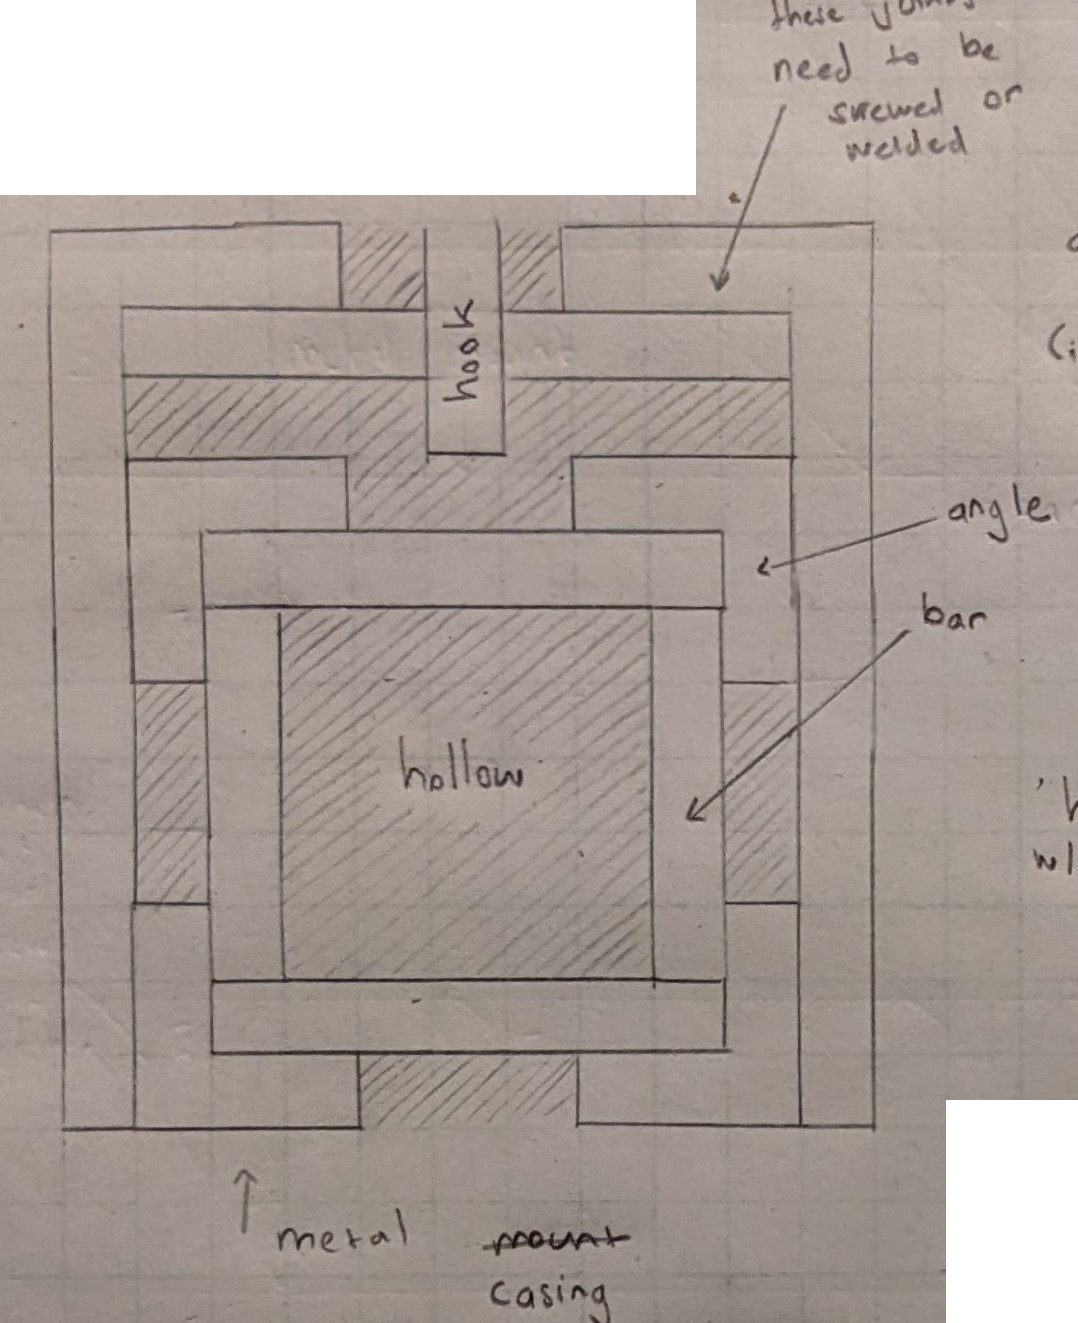 these
need to be
skrewed or
welded
hook
angle
bar
hollow
metal mount
casing